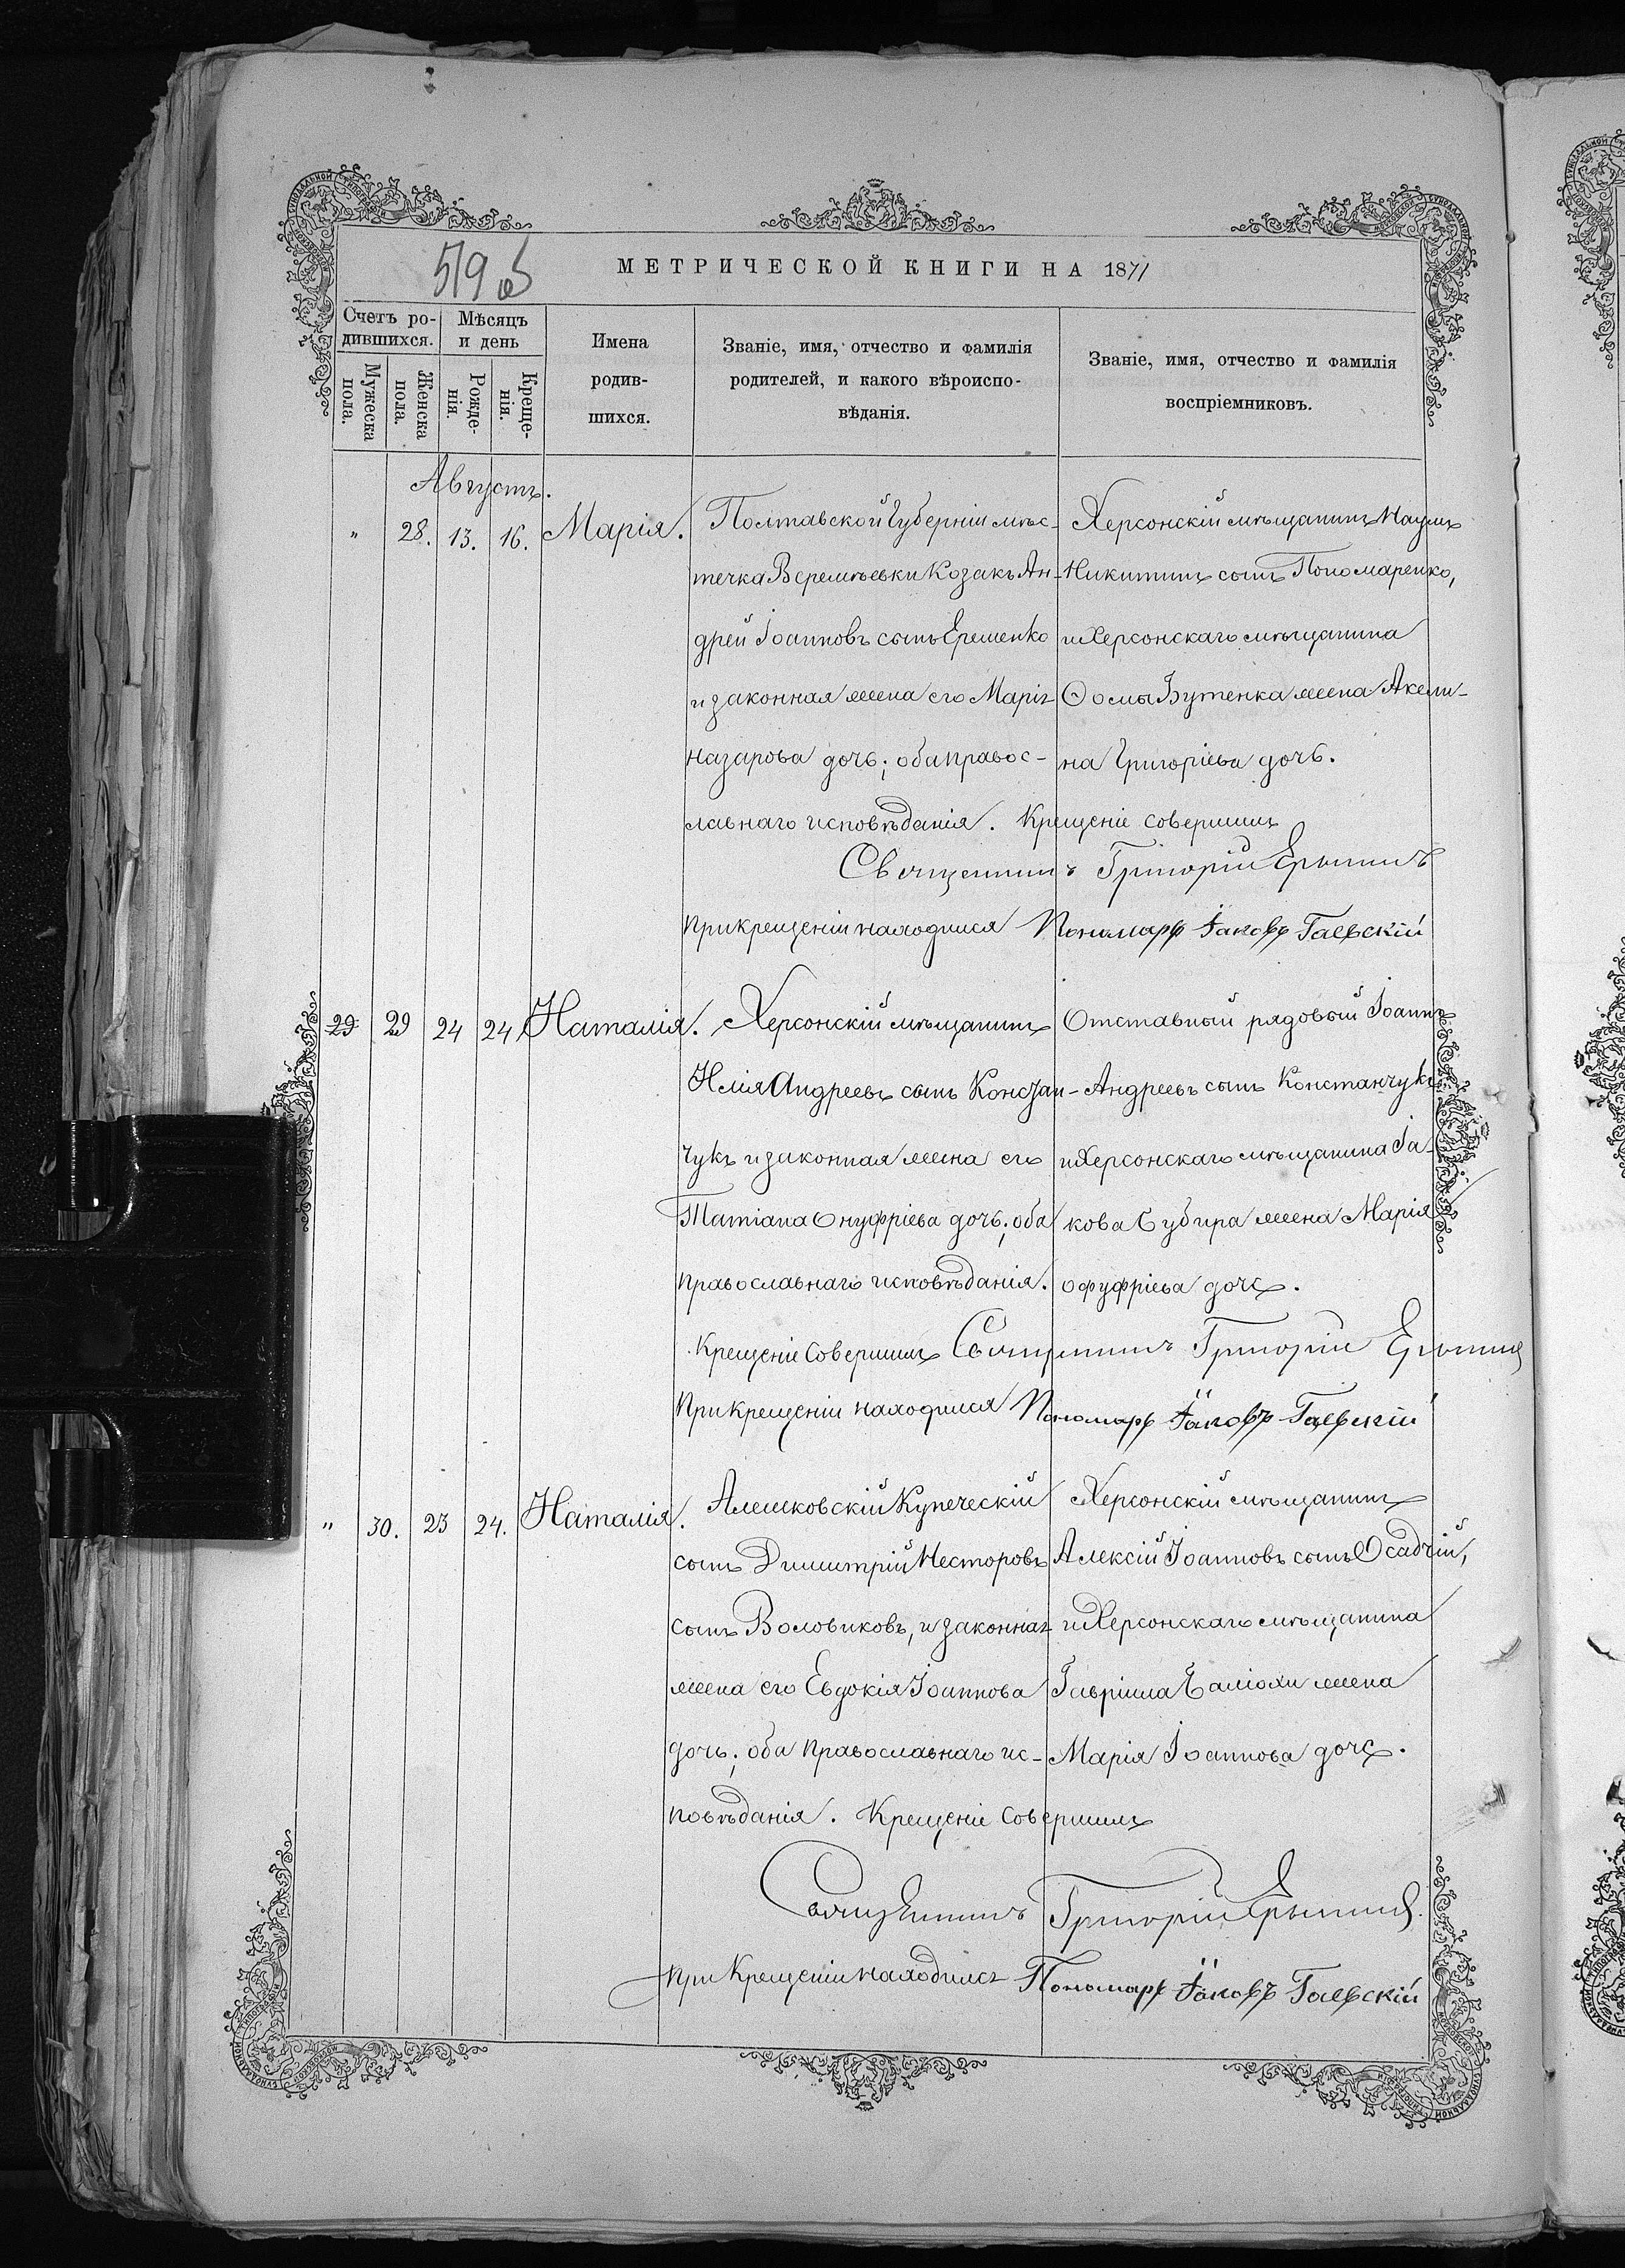 519 об
МЕТРИЧЕСКОЙ КНИГИ НА 1871
Счетъ ро-
дившихся.
Мѣсяцъ
и день
Мужеска
пола.
Женска
пола.
Рожде-
нія.
Креще-
нія.
Имена
родив-
шихся.
Званіе, имя, отчество и фамилія
родителей, и какого вѣроиспо-
вѣданія.
Званіе, имя, отчество и фамилія
воспріемниковъ.
Августъ.
" 28. 13. 16. Марія.
Полтавской Губерніи мѣс-
течка Веремѣевки Козакъ Ан-
дрей Іоанновъ сынъ Ерешенко
и законная жена его Марія
Назарова дочь; оба правос-
лавнаго исповѣданія. Крещеніе совершилъ
Херсонскій мѣщанинъ Наумъ
Никитинъ сынъ Пономаренко,
и Херсонскаго мѣщанина
Ѳомы Бутенка жена Акели-
на Григорієва дочь.
Священникъ Григорій
При крещеніи находился Пономарь Іаковъ Гаевскій
29 29 24 24 Наталія.
Херсонскій мѣщанинъ
Илія Андреевъ сынъ Констан-
чукъ и законная жена его
Татіана Онуфріева дочь; оба
православнаго исповѣданія.
Отставный рядовый Іоаннъ
Андреевъ сынъ Констанчукъ
и Херсонскаго мѣщанина Іа-
кова жена Марія
Офуфріева дочь.
Крещеніе совершилъ Священникъ Григорій
При крещеніи находился Пономарь Іаковъ Гаевскій
" 30. 23 24. Наталія.
Алешковскій Купеческій
сынъ Димитрій Несторовъ
сынъ Воловиковъ, и законная
жена его Евдокія Іоаннова
дочь; оба Православнаго ис-
повѣданія. Крещеніе совершилъ
Херсонскій мѣщанинъ
Алексій Іоанновъ сынъ Осадчій,
и Херсонскаго мѣщанина
Гавріила жена
Марія Іоаннова дочь.
Священникъ Григорій
При Крещеніи находился Пономарь Іаковъ Гаевскій